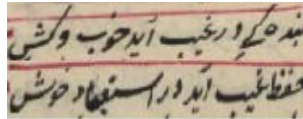 بنده کے در غیب آید خوب و کش
حفظ غیب آید در استعباد خوش